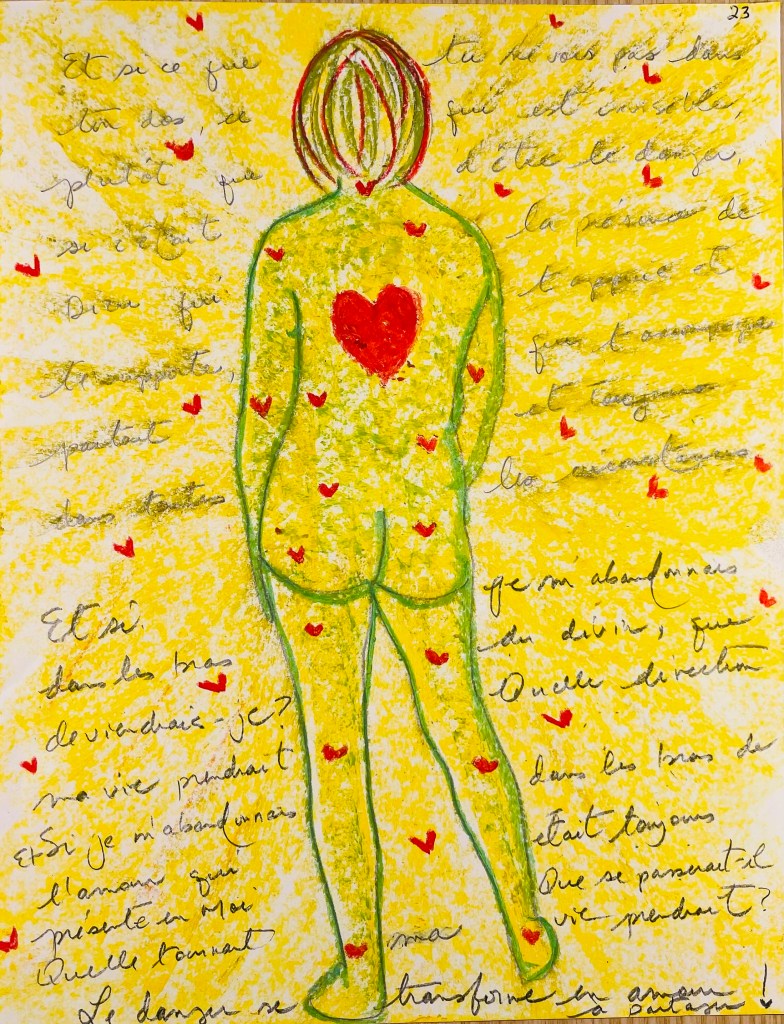 23
Et si ce que tu ne vois pas dans
ton dos, ce qui est invisible,
plutôt que d'être le danger,
si c'était la présence de
Dieu qui t'appuie et
te supporte, qui t'accompagne
partout et toujours
dans toutes les
Et si je m'abandonnais
dans les bras du divin, que
deviendrais-je? Quelle direction
ma vie prendrait
Et Si je m'abandonnais dans les bras de
l'amour qui était toujours
présente en moi Que se passerait-il
Quelle tournant ma vie prendrait?
Le danger se transforme en amour
à partager !